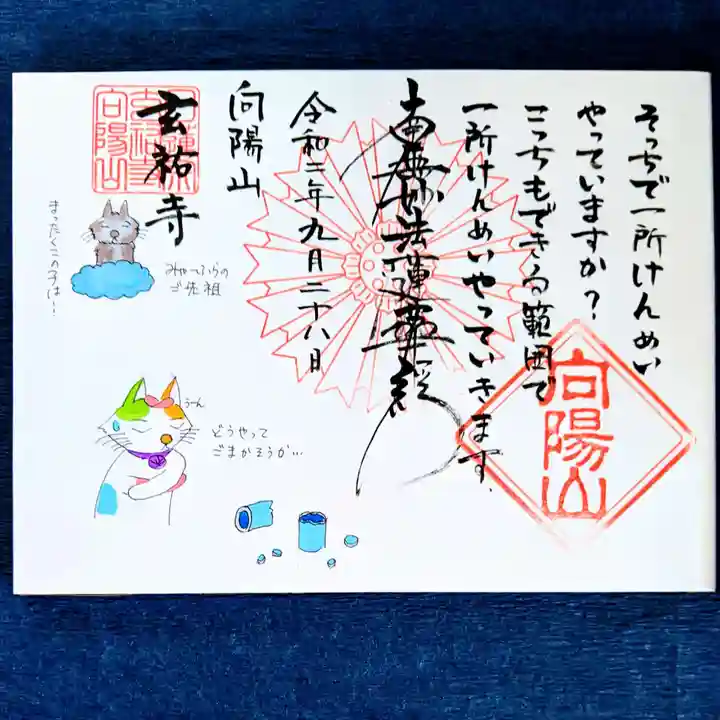 そっちで一所けんめい
やっていますか?
こっちもできる範囲で
一所けんめいやっていきます.
南無妙法蓮華経
令和二年九月二十八日
向陽山
玄祐寺
向陽山
向陽山
まったくこの子は…!
ご先祖
うーん
どうやって
ごまかそうか…